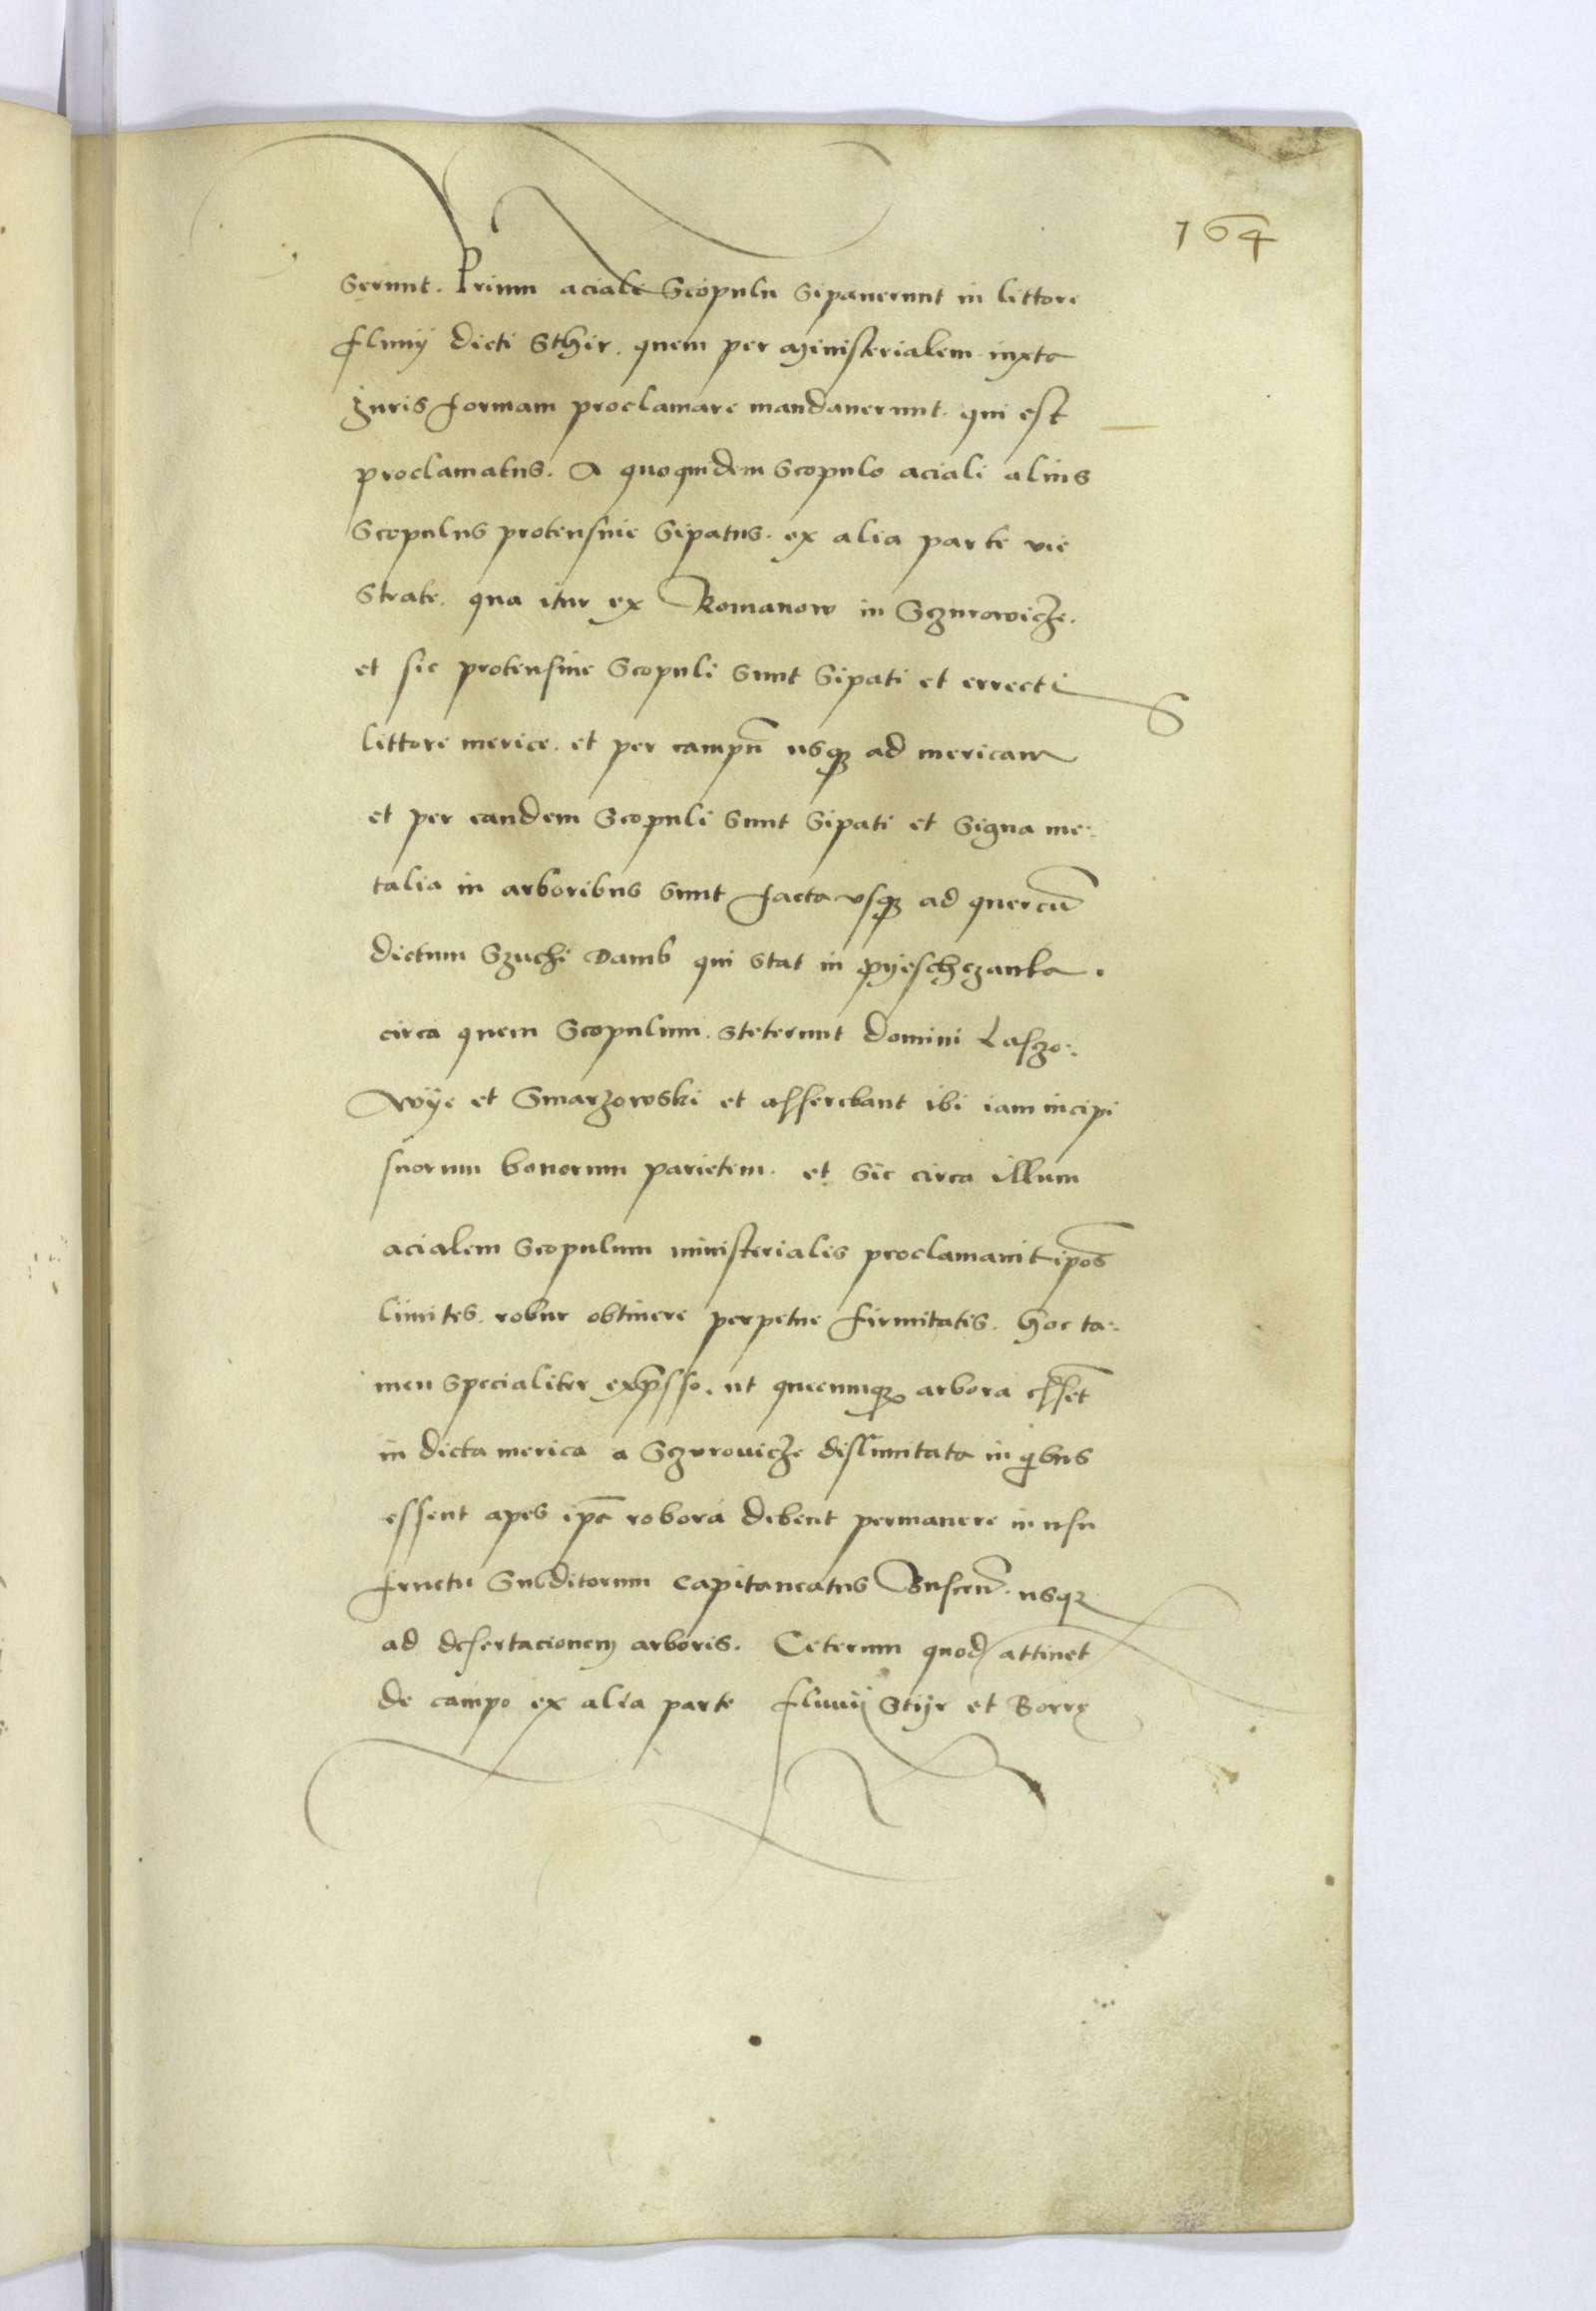 164
serunt. Primu aciale Scopulu Sipauerunt in littore
fluuij dicti Sthir. quem per Ministerialem iuxta
Juris formam proclamare mandauerunt. qui est
proclamatus. A quoquidem Scopulo aciali alius
Scopulus protensiue Sipatus. ex alia parte vie
Strate. qua itur ex Romanow in Sczurowicze.
et sic protensiue Scopuli Sunt Sipati et errecti
littore merice. et per campū usq3 ad mericam
et per eandem Scopuli Sunt Sipati et Signa me:
talia in arboribus Sunt facta vsq3 ad quercū
dictum Szuchi Damb qui stat in Pyeschczanka.
circa quem Scopulum. steterunt domini Laszo:
wye et Smarzowski et asserebant ibi iam incipi
suorum bonorum parietem. et Sic circa illum
acialem Scopulum ministerialis proclamauit ip̄os
limites. robur obtinere perpetue firmitatis. hoc ta:
men specialiter exp̄sso. ut quecumq3 arbora essēt
in dicta merica a Sczvrouicze dislimitata in qibus
essent apes ip̄a robora debent permanere in usu
fructu Subditorum Capitaneatus Buscen̄. usq3
ad desertacionem arboris. Ceterum quod attinet
de campo ex alia parte fluuij Stijr et Borrę